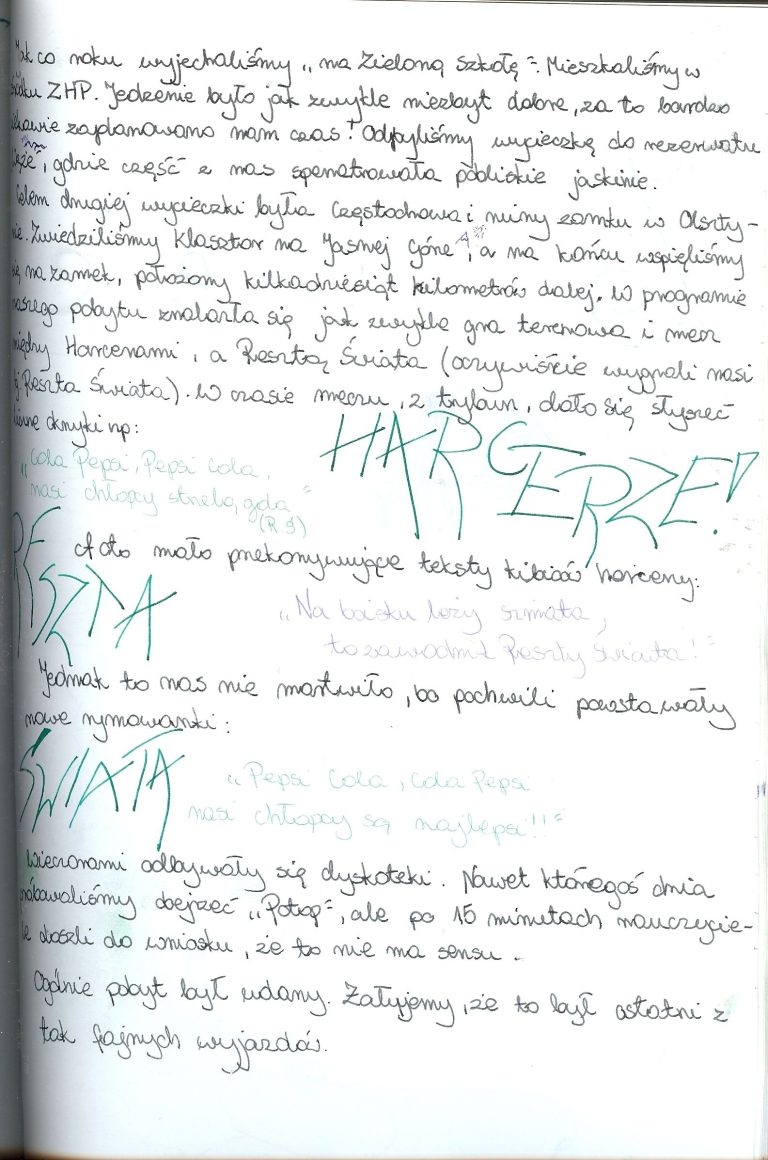 Jak co roku wyjechaliśmy „na Zieloną Szkołę". Mieszkaliśmy w
ZHP. Jedzenie było jak zwykle niezbyt dobre, za to bardzo
zaplanowano nam czas! Odbyliśmy wycieczkę do rezerwatu
gdzie część z nas spenetrowała pobliskie jaskinie.
Celem drugiej wycieczki była Częstochowa i ruiny zamku w Olszty-
nie. Zwiedziliśmy klasztor na Jasnej Górze, a na końcu wspięliśmy
się na zamek, położony kilkadziesiąt kilometrów dalej. W programie
naszego pobytu znalazła się jak zwykle gra terenowa i mecz
między Harcerzami, a Resztą Świata (oczywiście wygrali nasi
Reszta Świata). W czasie meczu, z trybun, dało się słyszeć
różne okrzyki np:
HARCERZE!
„Cola Pepsi, Pepsi Cola,
nasi chłopcy strzelą gola"
(R Ś)
A oto mało przekonywujące teksty kibiców harcerzy:
RESZTA
„Na boisku leży szmata,
to zawodnik Reszty Świata!"
Jednak to nas nie martwiło, bo po chwili powstawały
nowe rymowanki:
ŚWIATA
„Pepsi Cola, Cola Pepsi
nasi chłopcy są najlepsi!!"
Wieczorami odbywały się dyskoteki. Nawet któregoś dnia
próbowaliśmy obejrzeć „Potop", ale po 15 minutach nauczycie-
le doszli do wniosku, że to nie ma sensu.
Ogólnie pobyt był udany. Żałujemy, że to był ostatni z
tak fajnych wyjazdów.